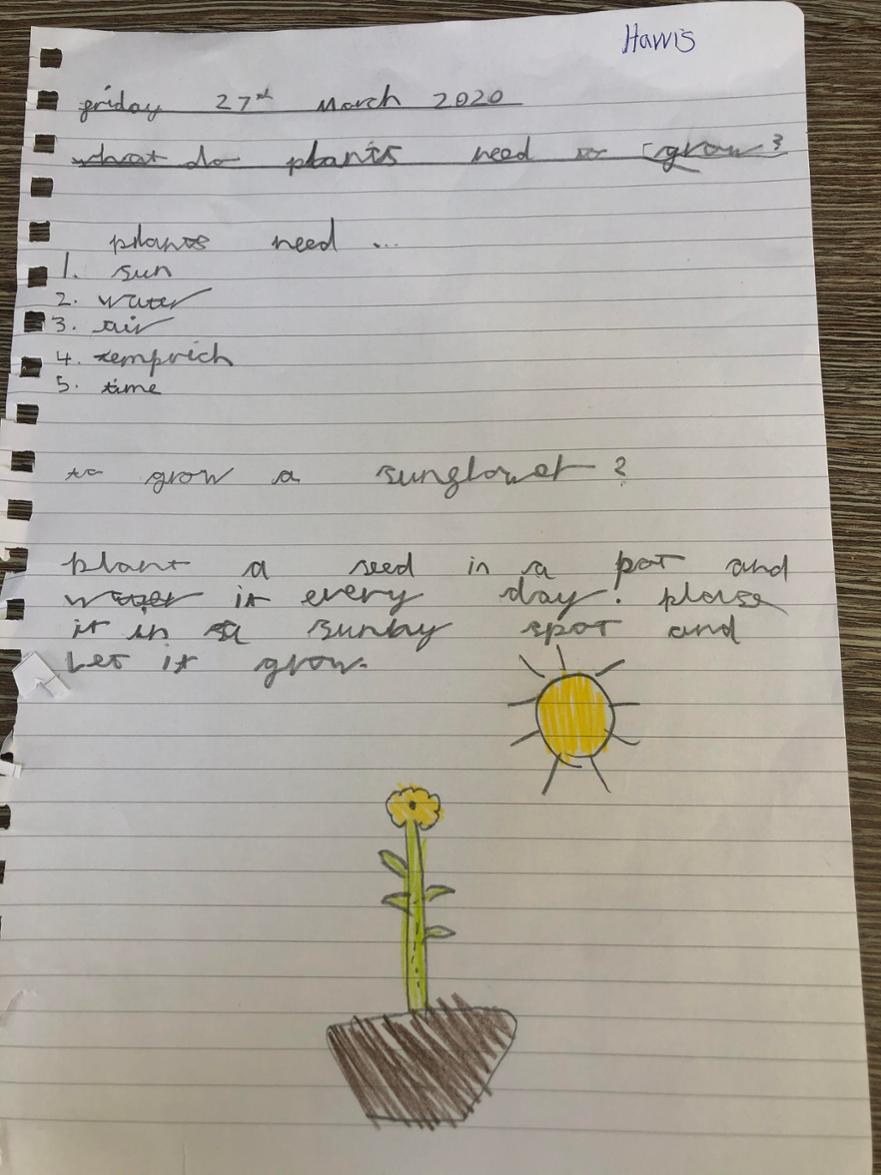 Harris
friday 27th March 2020
what do plants need to grow?
plants need ...
1. sun
2. water
3. air
4. temprich
5. time
to grow a sunflower?
plant a seed in a pot and
water it every day. plase
it in a sunny spot and
Let it grow.